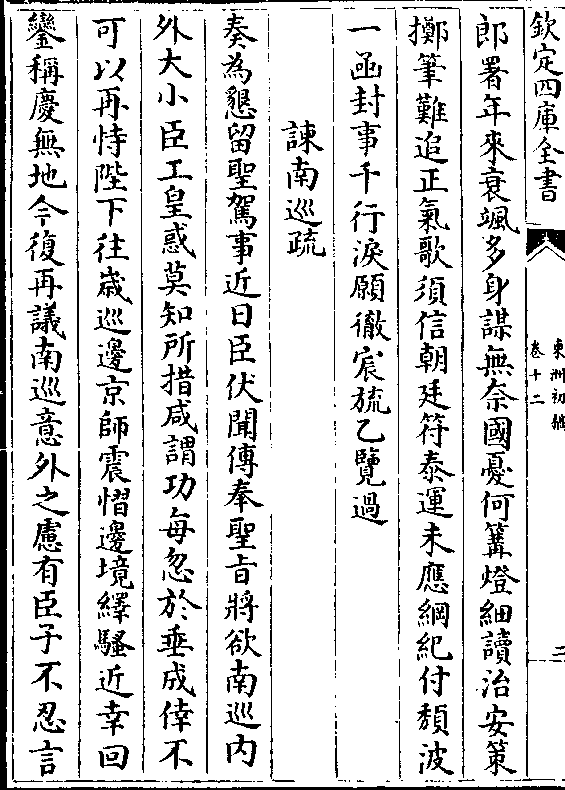 欽定四庫全書
東洲初稿
卷十二
二
郎署年來衰颯多身謀無奈國憂何篝燈細讀治安策
擲筆難追正氣歌須信朝廷符泰運未應綱紀付頽波
一函封事千行淚願徹宸旒乙覽過
諫南巡疏
奏為懇留聖駕事近日臣伏聞傳奉聖旨將欲南巡內
外大小臣工皇惑莫知所措咸謂功每忽於垂成倖不
可以再恃陛下往嵗巡邊京師震慴邊境繹騷近幸回
鑾稱慶無地今復再議南巡意外之慮有臣子不忍言